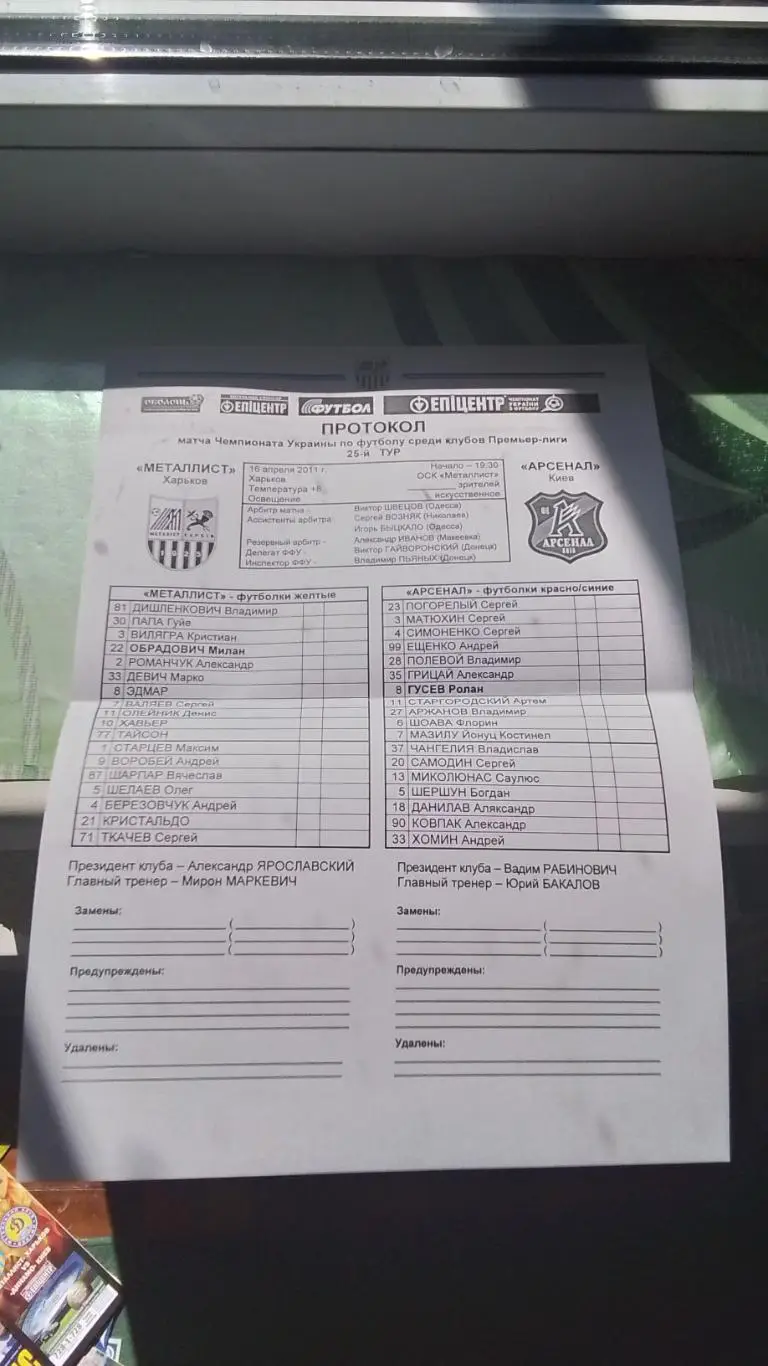 ОБОЛОНЬ
ЕПІЦЕНТР
ФУТБОЛ
ЕПІЦЕНТР ЧЕМПІОНАТ УКРАЇНИ З ФУТБОЛУ
ПРОТОКОЛ
матча Чемпионата Украины по футболу среди клубов Премьер-лиги
25-й ТУР
«МЕТАЛЛИСТ»
Харьков
16 апреля 2011 г. Начало – 19:30
Харьков ОСК «Металлист»
Температура +8 зрителей
Освещение искусственное
«АРСЕНАЛ»
Киев
МЕТАЛЛІСТ ХАРКІВ
1925
АРСЕНАЛ
КИЇВ
Арбитр матча - Виктор ШВЕЦОВ (Одесса)
Ассистенты арбитра: Сергей ВОЗНЯК (Николаев)
Игорь БЫЦКАЛО (Одесса)
Резервный арбитр - Александр ИВАНОВ (Макеевка)
Делегат ФФУ - Виктор ГАЙВОРОНСКИЙ (Донецк)
Инспектор ФФУ - Владимир ПЬЯНЫХ (Донецк)
«МЕТАЛЛИСТ» - футболки желтые
81 ДИШЛЕНКОВИЧ Владимир
30 ПАПА Гуйе
3 ВИЛЯГРА Кристиан
22 ОБРАДОВИЧ Милан
2 РОМАНЧУК Александр
33 ДЕВИЧ Марко
8 ЭДМАР
7 ВАЛЯЕВ Сергей
11 ОЛЕЙНИК Денис
10 ХАВЬЕР
77 ТАЙСОН
1 СТАРЦЕВ Максим
9 ВОРОБЕЙ Андрей
87 ШАРПАР Вячеслав
5 ШЕЛАЕВ Олег
4 БЕРЕЗОВЧУК Андрей
21 КРИСТАЛЬДО
71 ТКАЧЕВ Сергей
«АРСЕНАЛ» - футболки красно/синие
23 ПОГОРЕЛЫЙ Сергей
3 МАТЮХИН Сергей
4 СИМОНЕНКО Сергей
99 ЕЩЕНКО Андрей
28 ПОЛЕВОЙ Владимир
35 ГРИЦАЙ Александр
8 ГУСЕВ Ролан
11 СТАРГОРОДСКИЙ Артем
27 АРЖАНОВ Владимир
6 ШОАВА Флорин
7 МАЗИЛУ Йонуц Костинел
37 ЧАНГЕЛИЯ Владислав
20 САМОДИН Сергей
13 МИКОЛЮНАС Саулюс
5 ШЕРШУН Богдан
18 ДАНИЛАВ Аляксандр
90 КОВПАК Александр
33 ХОМИН Андрей
Президент клуба – Александр ЯРОСЛАВСКИЙ
Главный тренер – Мирон МАРКЕВИЧ
Президент клуба – Вадим РАБИНОВИЧ
Главный тренер – Юрий БАКАЛОВ
Замены:
( )
( )
( )
Замены:
( )
( )
( )
Предупреждены:
Предупреждены:
Удалены:
Удалены:
VS
«ДИНАМО» КИЕВ
ЕПІЦЕНТР